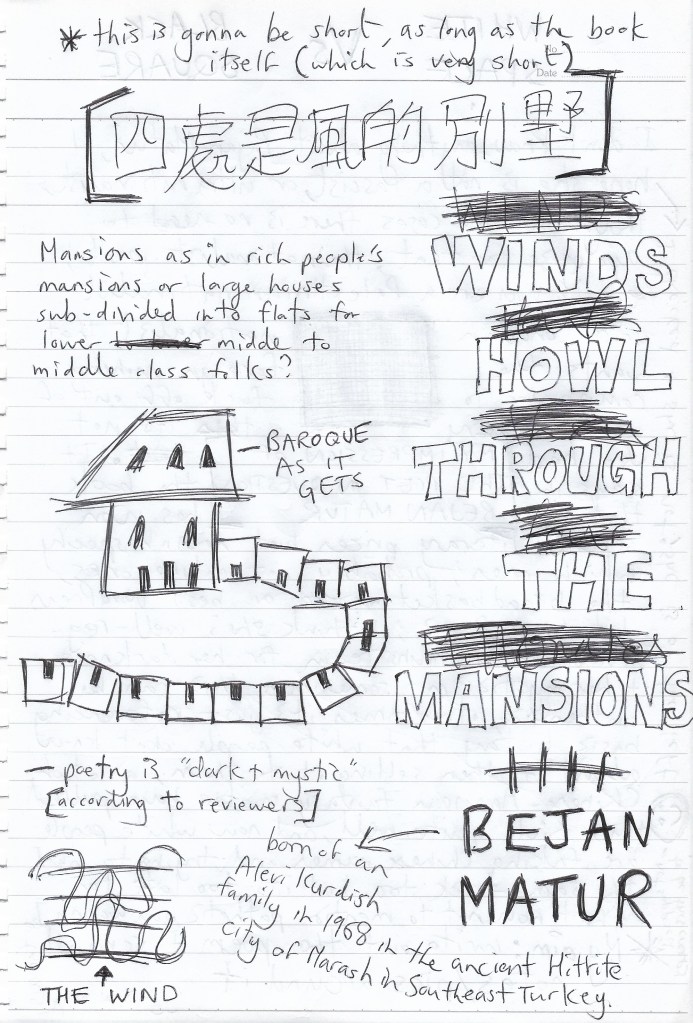 * this is gonna be short, as long as the book
itself (which is very short)
No
Date
[四處是風的別墅]
WINDS
HOWL
THROUGH
THE
MANSIONS
Mansions as in rich people's
mansions or large houses
sub-divided into flats for
lower midde to
middle class folks?
- BAROQUE
AS IT
GETS
- poetry is "dark + mystic"
[according to reviewers]
BEJAN
MATUR
born of an
Alevi Kurdish
family in 1968 in the ancient Hittite
city of Marash in Southeast Turkey.
THE WIND